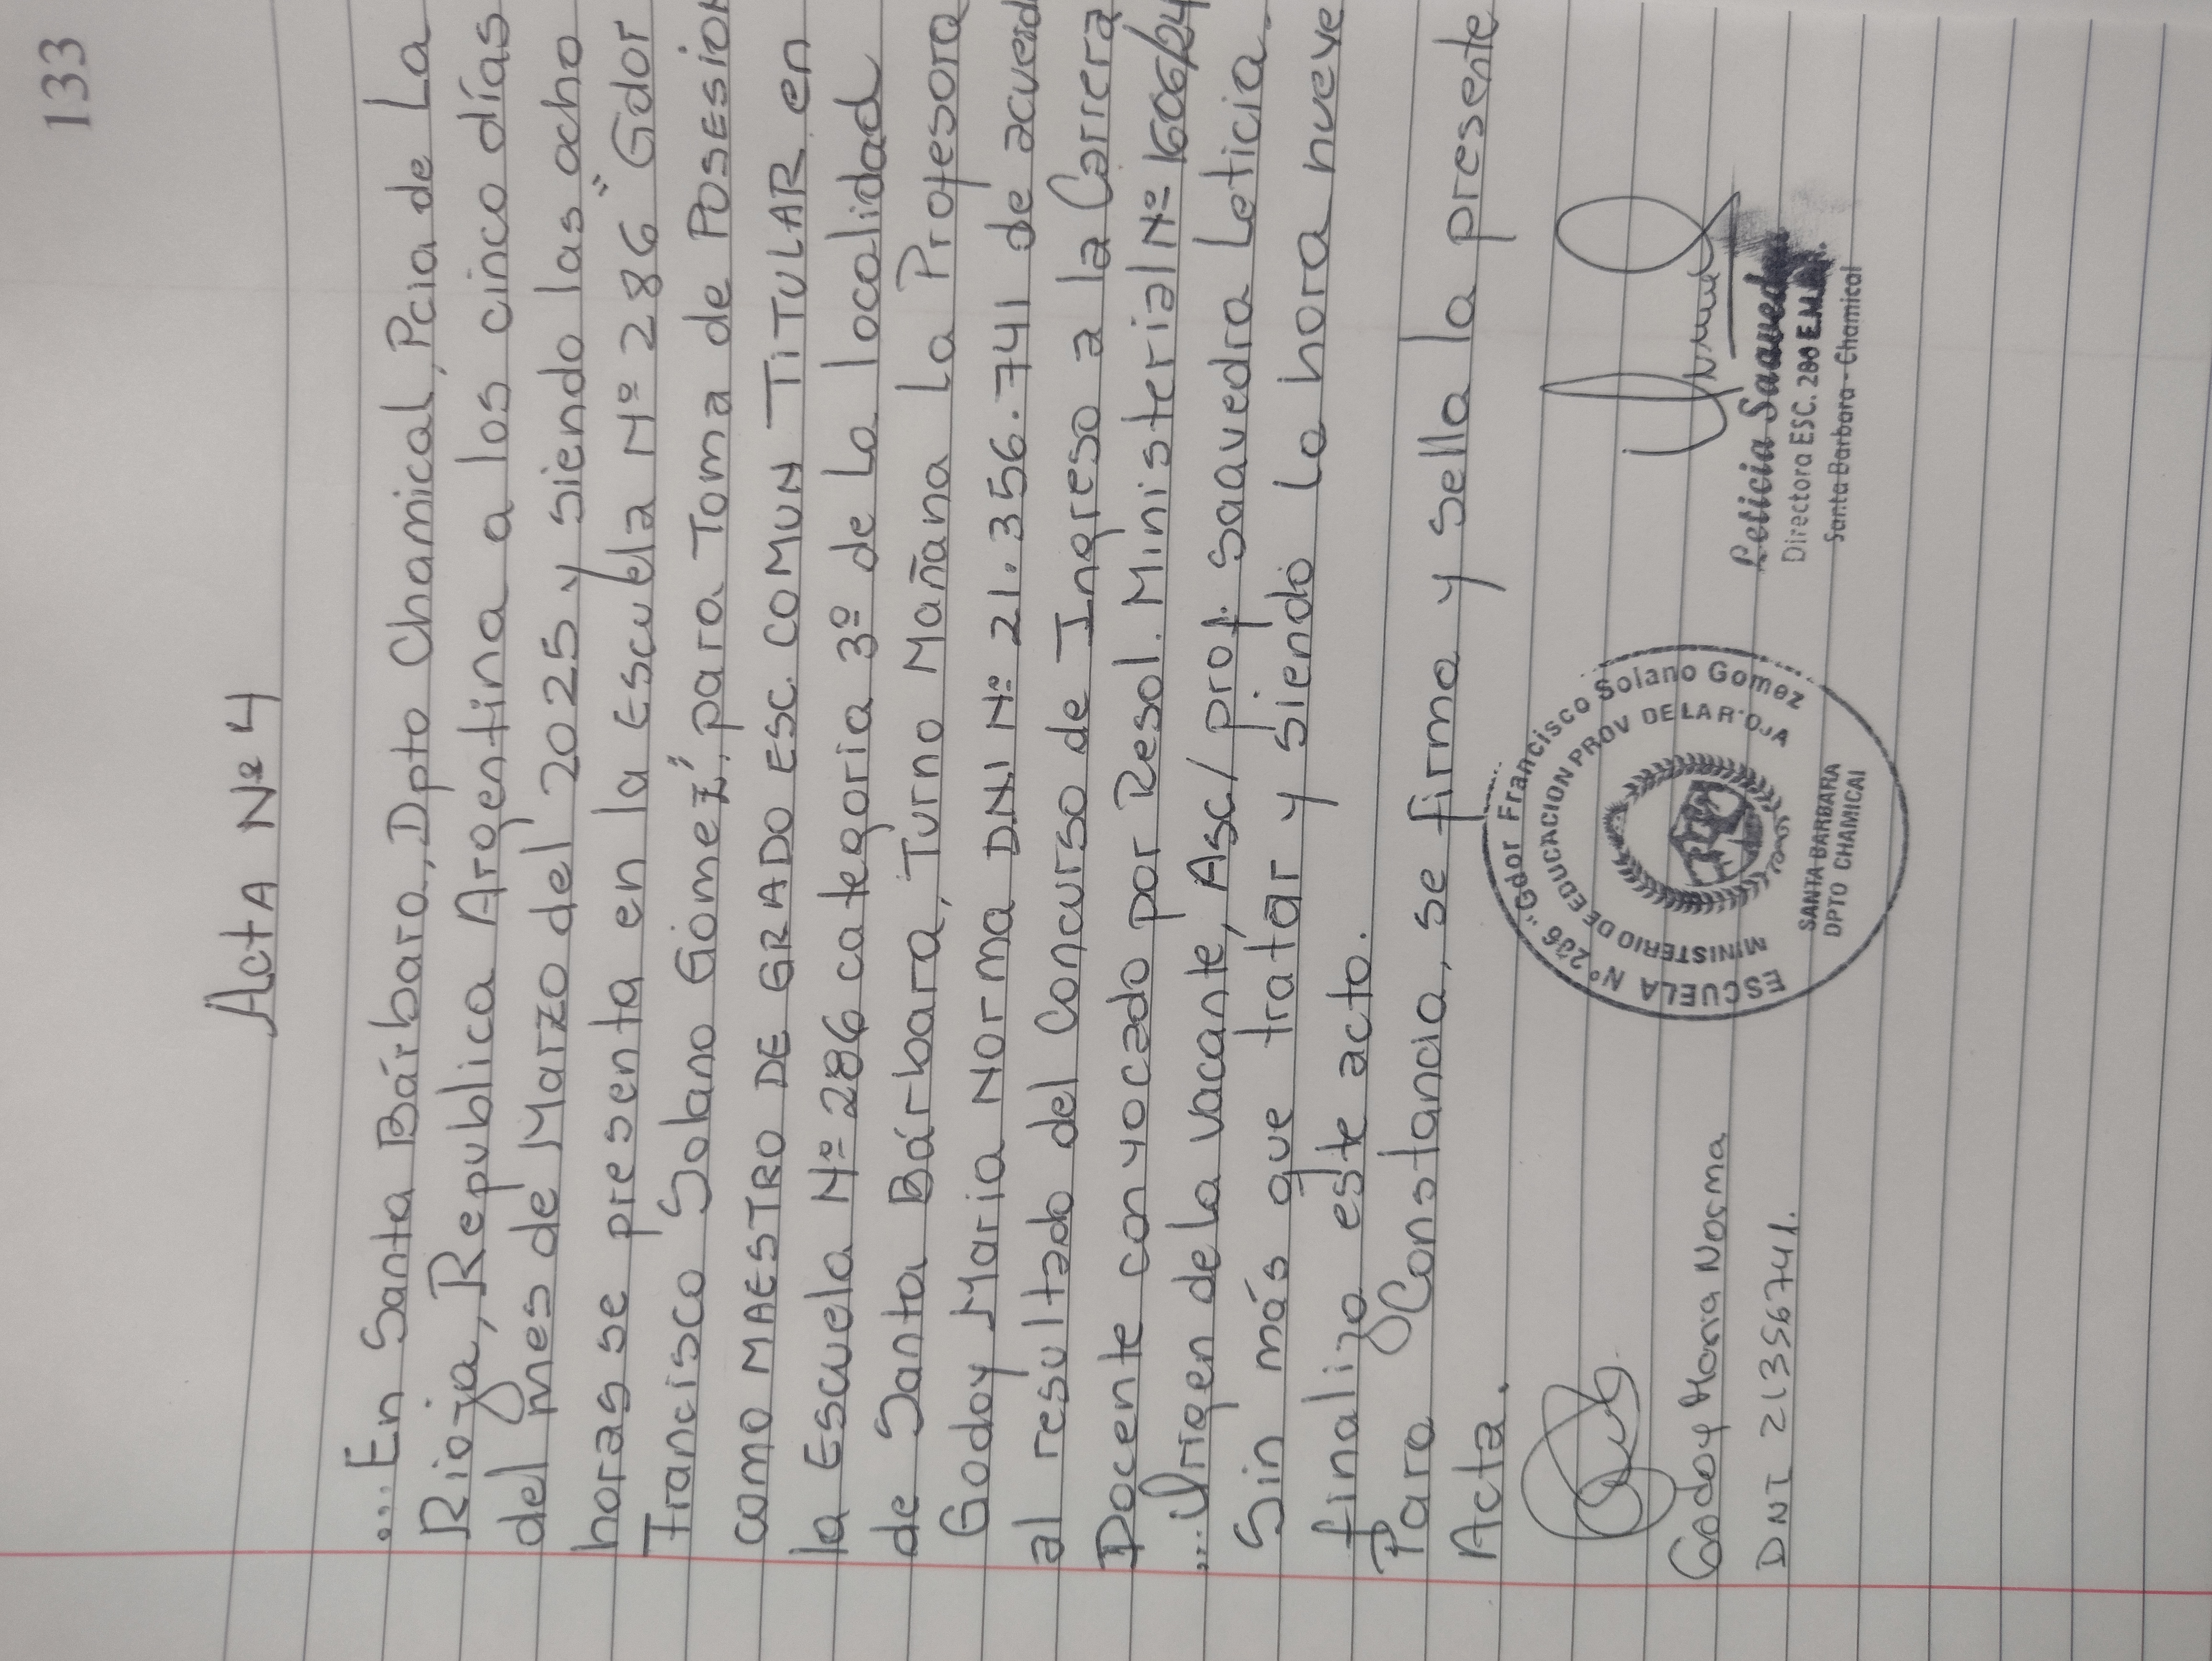 133
Acta Nº 4
...En Santa Bárbara, Dpto Chamical, Pcia de La
Rioja, Republica Argentina a los cinco días
del mes de Marzo del 2025 y siendo las ocho
horas se presenta en la Escuela Nº 286 "Gdor
Francisco Solano Gómez", para Toma de POSESION
como MAESTRO DE GRADO ESC. COMUN TITULAR en
la Escuela Nº 286 categoria 3º de La localidad
de Santa Bárbara, Turno Mañana La Profesora
Godoy Maria Norma D.N.I Nº 21.356.741 de acuerd
al resultado del Concurso de Ingreso a la Carrera
Docente convocado por Resol. Ministerial Nº 1606/24
...Origen de la vacante, Asc/ prof. Saavedra Leticia.
Sin más que tratar y siendo la hora nueve
finalizo este acto.
Para Constancia, se firma y sella la presente
Acta.
Godoy Maria Norma
DNI 21356741.
ESCUELA Nº 286 "Gdor Francisco Solano Gomez
MINISTERIO DE EDUCACION PROV DE LA RIOJA
SANTA BARBARA
DPTO CHAMICAL
Leticia Saavedra
Directora ESC. 286
Santa Barbara - Chamical